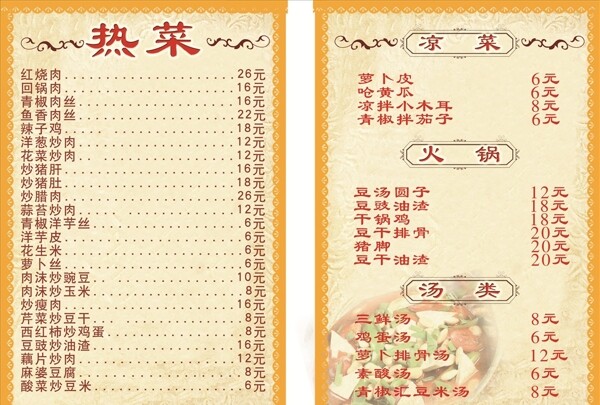 热菜
红烧肉........................26元
回锅肉........................16元
青椒肉丝......................16元
鱼香肉丝......................22元
辣子鸡........................18元
洋葱炒肉......................12元
花菜炒肉......................12元
炒猪肝........................16元
炒猪肚........................18元
炒腊肉........................26元
蒜苔炒肉......................12元
青椒洋芋丝....................6元
洋芋皮........................6元
花生米........................6元
萝卜丝........................6元
肉沫炒豌豆....................10元
肉沫炒玉米....................8元
炒瘦肉........................16元
芹菜炒豆干....................8元
西红柿炒鸡蛋..................8元
豆豉炒油渣....................16元
藕片炒肉......................12元
麻婆豆腐......................8元
酸菜炒豆米....................6元
凉菜
萝卜皮 6元
呛黄瓜 6元
凉拌小木耳 8元
青椒拌茄子 6元
火锅
豆汤圆子 12元
豆豉油渣 18元
干锅鸡 18元
豆干排骨 20元
猪脚 20元
豆干油渣 20元
汤类
三鲜汤 8元
鸡蛋汤 6元
萝卜排骨汤 12元
素酸汤 6元
青椒汇豆米汤 8元